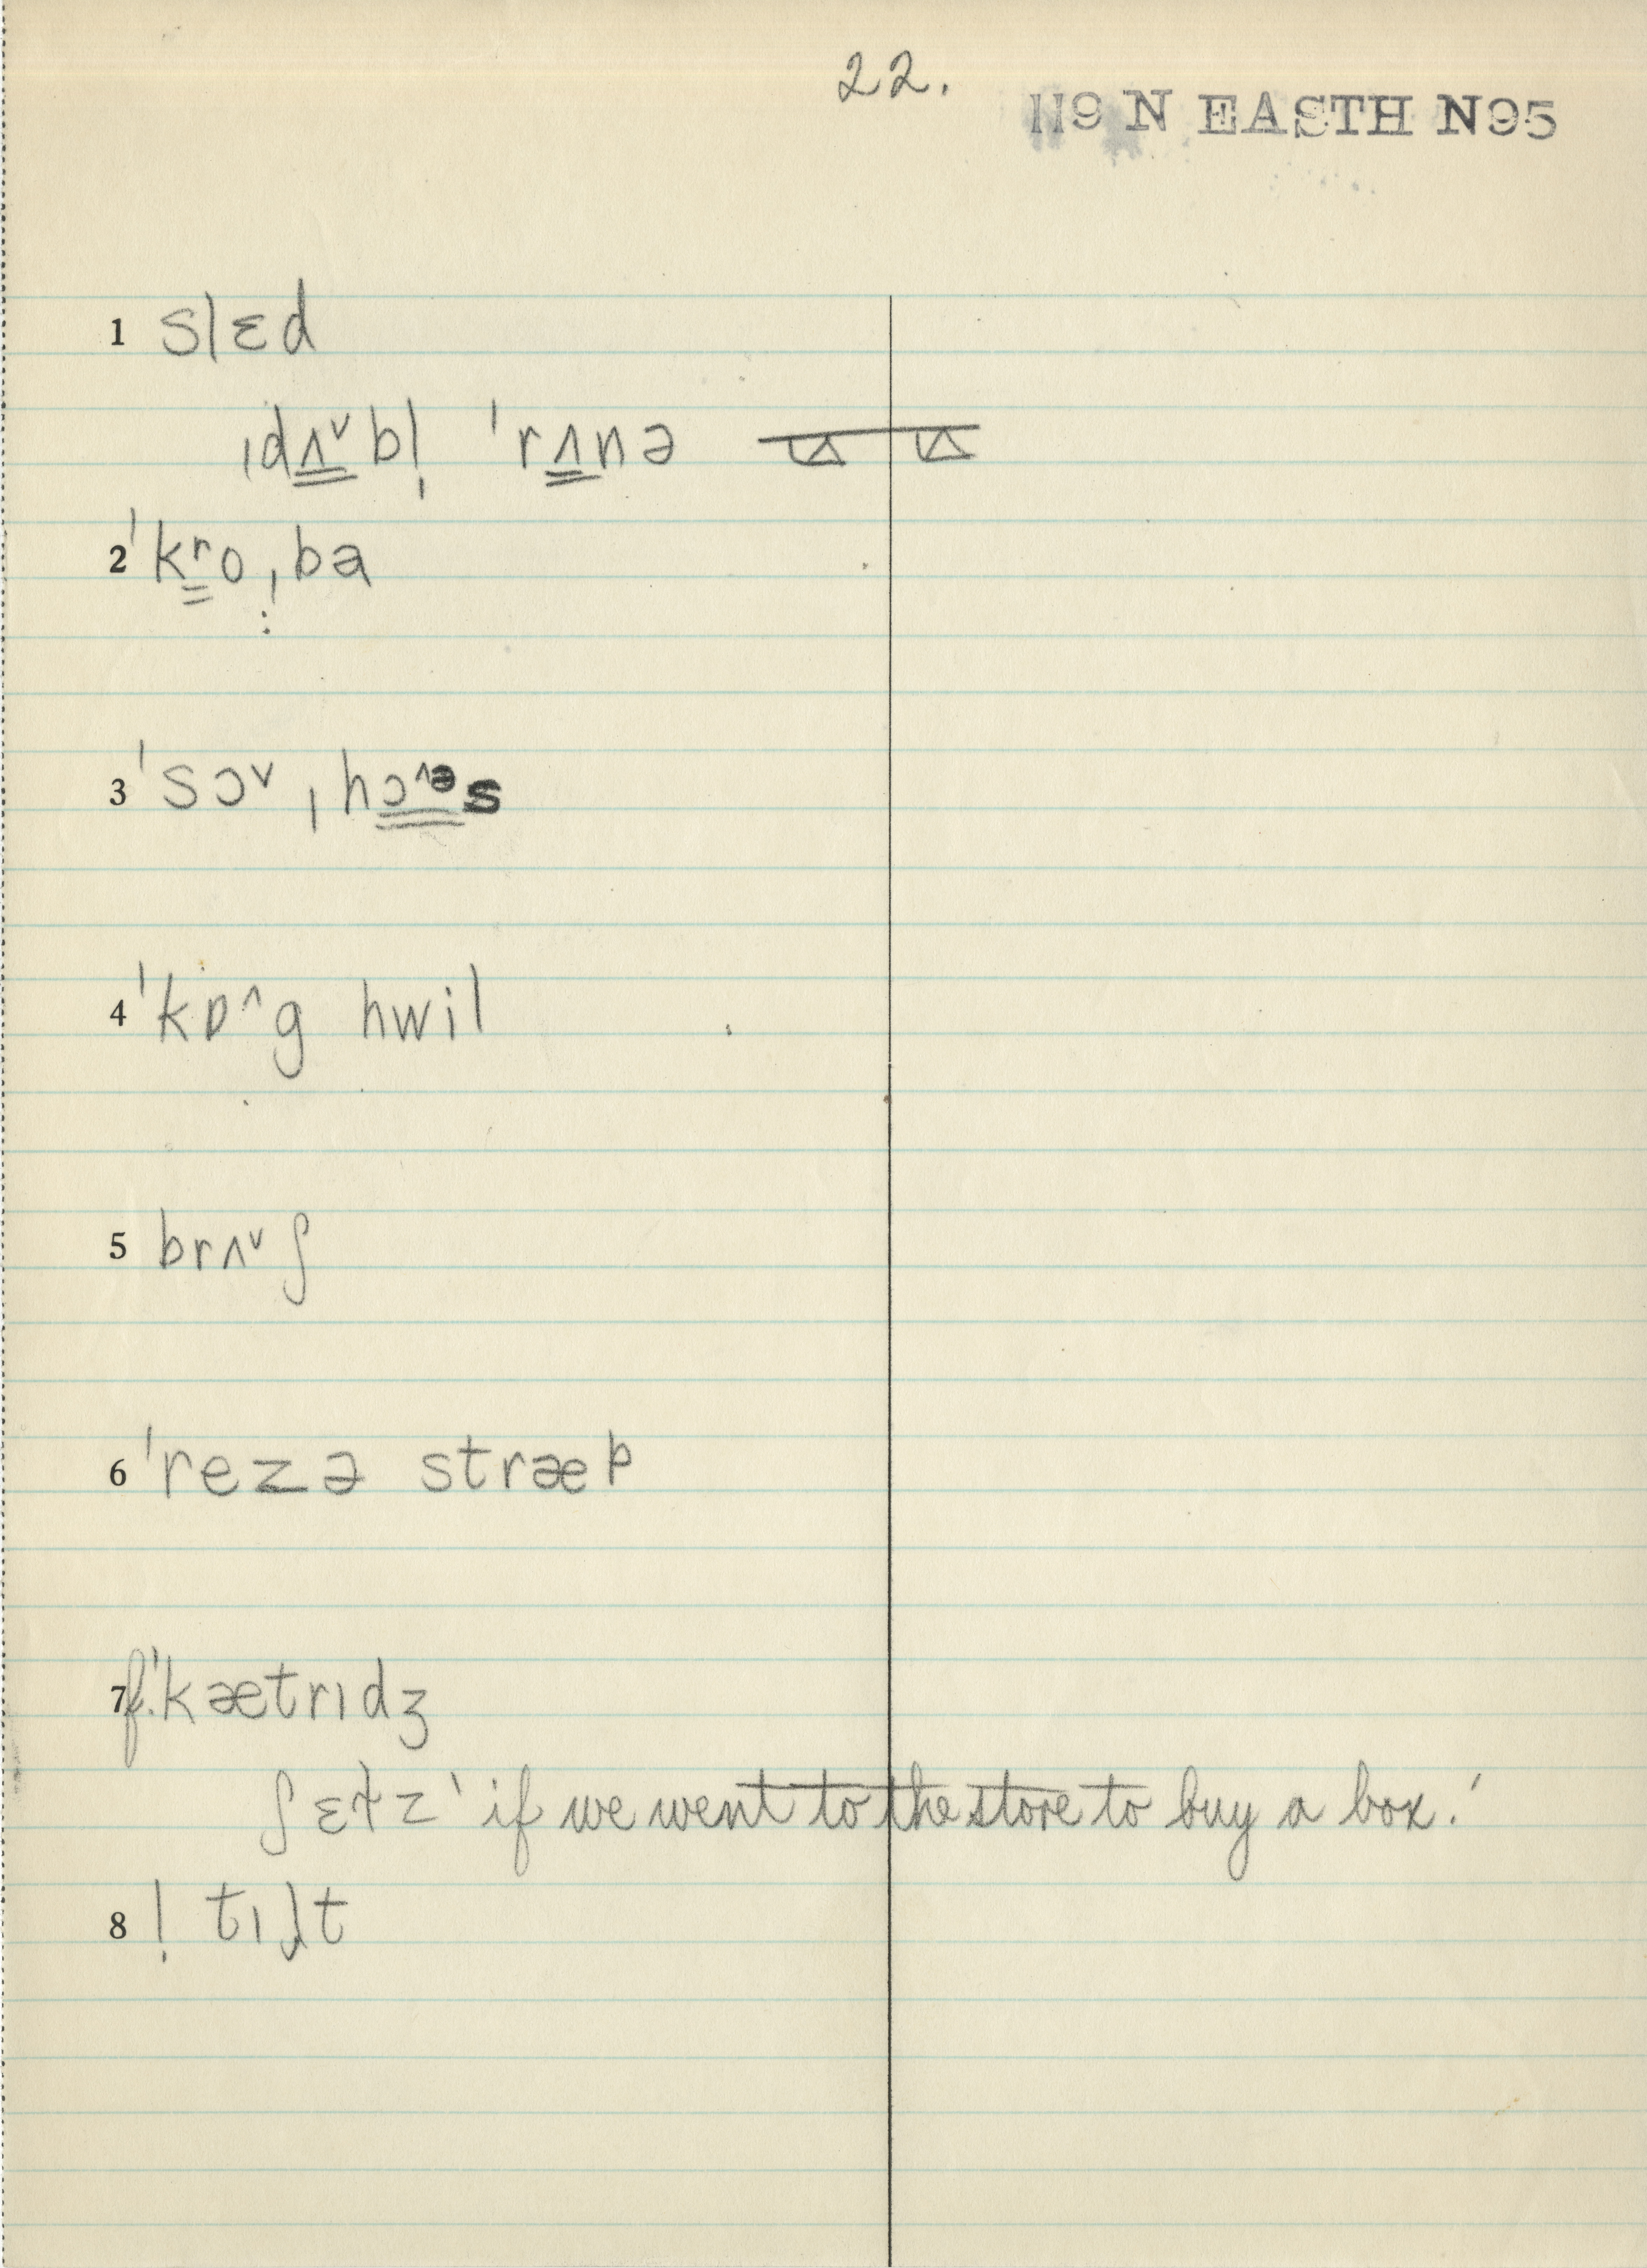 22.
119 N EASTH N95
1 slɛd
ˌdʌ˅bl̩ ˈrʌnə
2 ˈkroˌba
3 ˈsɔ˅ˌhɔ˄əs
4 ˈkɒ˄g hwil
5 brʌ˅ʃ
6 ˈrezə stræp
7 f.ˈkætrɪdʒ
ʃɛɫz 'if we went to the store to buy a box.'
8 ! tɪlt